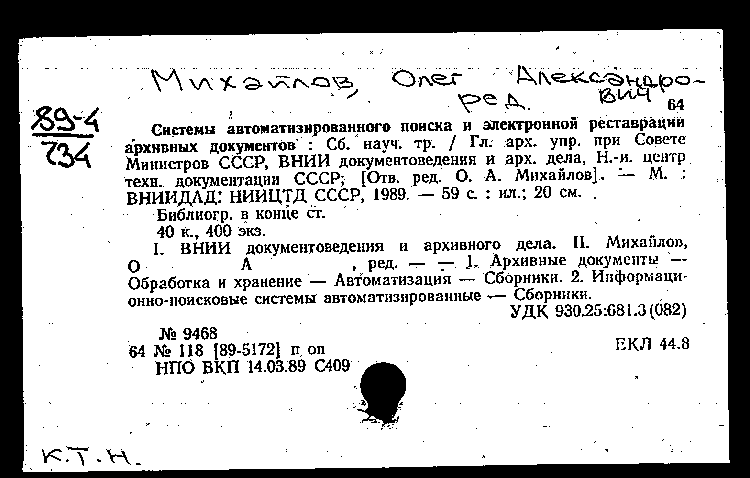 Михайлов, Олег Александро-
вич
ред.
64
89-4
734
Системы автоматизированного поиска и электронной реставрации
архивных документов : Сб. науч. тр. / Гл. арх. упр. при Совете
Министров СССР, ВНИИ документоведения и арх. дела, Н.-и. центр
техн. документации СССР; [Отв. ред. О. А. Михайлов]. — М. :
ВНИИДАД: НИИЦТД СССР, 1989. — 59 с. : ил.; 20 см.
Библиогр. в конце ст.
40 к., 400 экз.
I. ВНИИ документоведения и архивного дела. II. Михайлов,
О А , ред. — — 1. Архивные документы —
Обработка и хранение — Автоматизация — Сборники. 2. Информаци-
онно-поисковые системы автоматизированные — Сборники.
УДК 930.25:681.3(082)
№ 9468
64 № 118 [89-5172] п оп
ЕКЛ 44.8
НПО ВКП 14.03.89 С409
К.Т.Н.